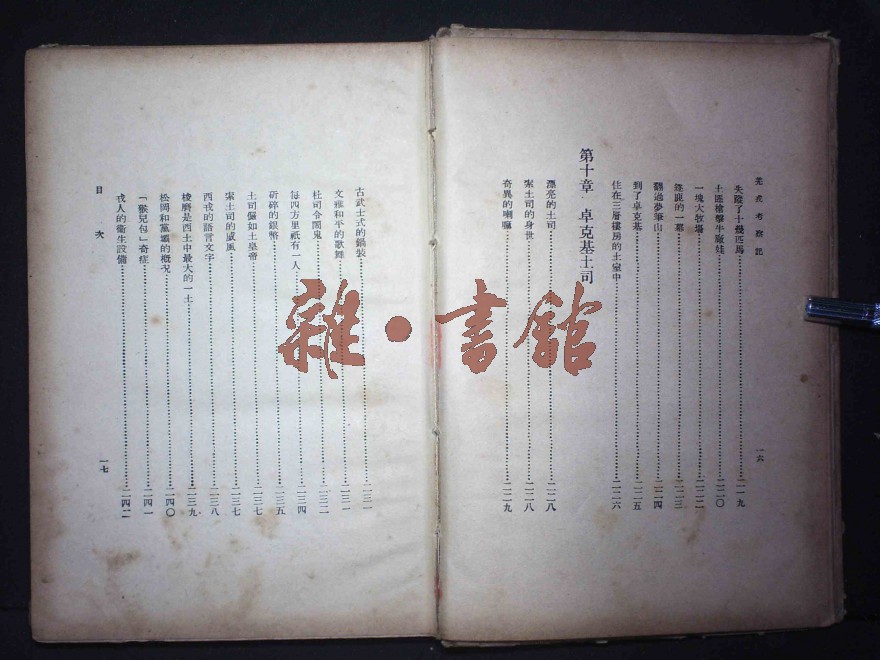 羌戎考察記
失蹤了十幾匹馬…二一九
土匪槍擊牛廠娃…二二〇
一塊大牧場…二二二
逐鹿的一幕…二二三
翻過夢筆山…二二四
到了卓克基…二二五
住在三層樓房的土寨中…二二六
第十章 卓克基土司
漂亮的土司…二二八
索土司的身世…二二八
奇異的喇嘛…二二九
一六
古武士式的鍋裝…二三一
文雅和平的歌舞…二三一
杜司令鬧鬼…二三二
每四方里祇有一人…二三四
斫碎的銀幣…二三五
土司儼如土皇帝…二三七
索土司的威風…二三七
西戎的語言文字…二三八
梭磨是西土中最大的一土…二三九
松岡和黨壩的概況…二四〇
「猴兒包」奇症…二四一
戎人的衛生設備…二四二
目次
一七
雜·書館